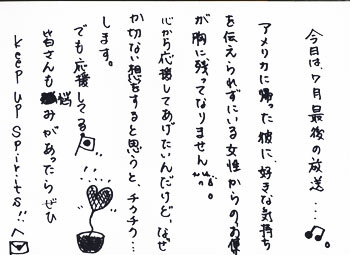 今日は、7月最後の放送…。
アメリカに帰った彼に、好きな気持ち
を伝えられずにいる女性からのお便り
が胸に残ってなりません…。
心から応援してあげたいんだけど、なぜ
か切ない想をすると思うと、チクチク…
します。
でも応援してる
皆さんも悩みがあったらぜひ
KEEP UP SPIRITS!!へ